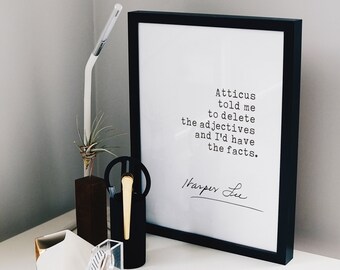 Atticus
told me
to delete
the adjectives
and I'd have
the facts.
Harper Lee